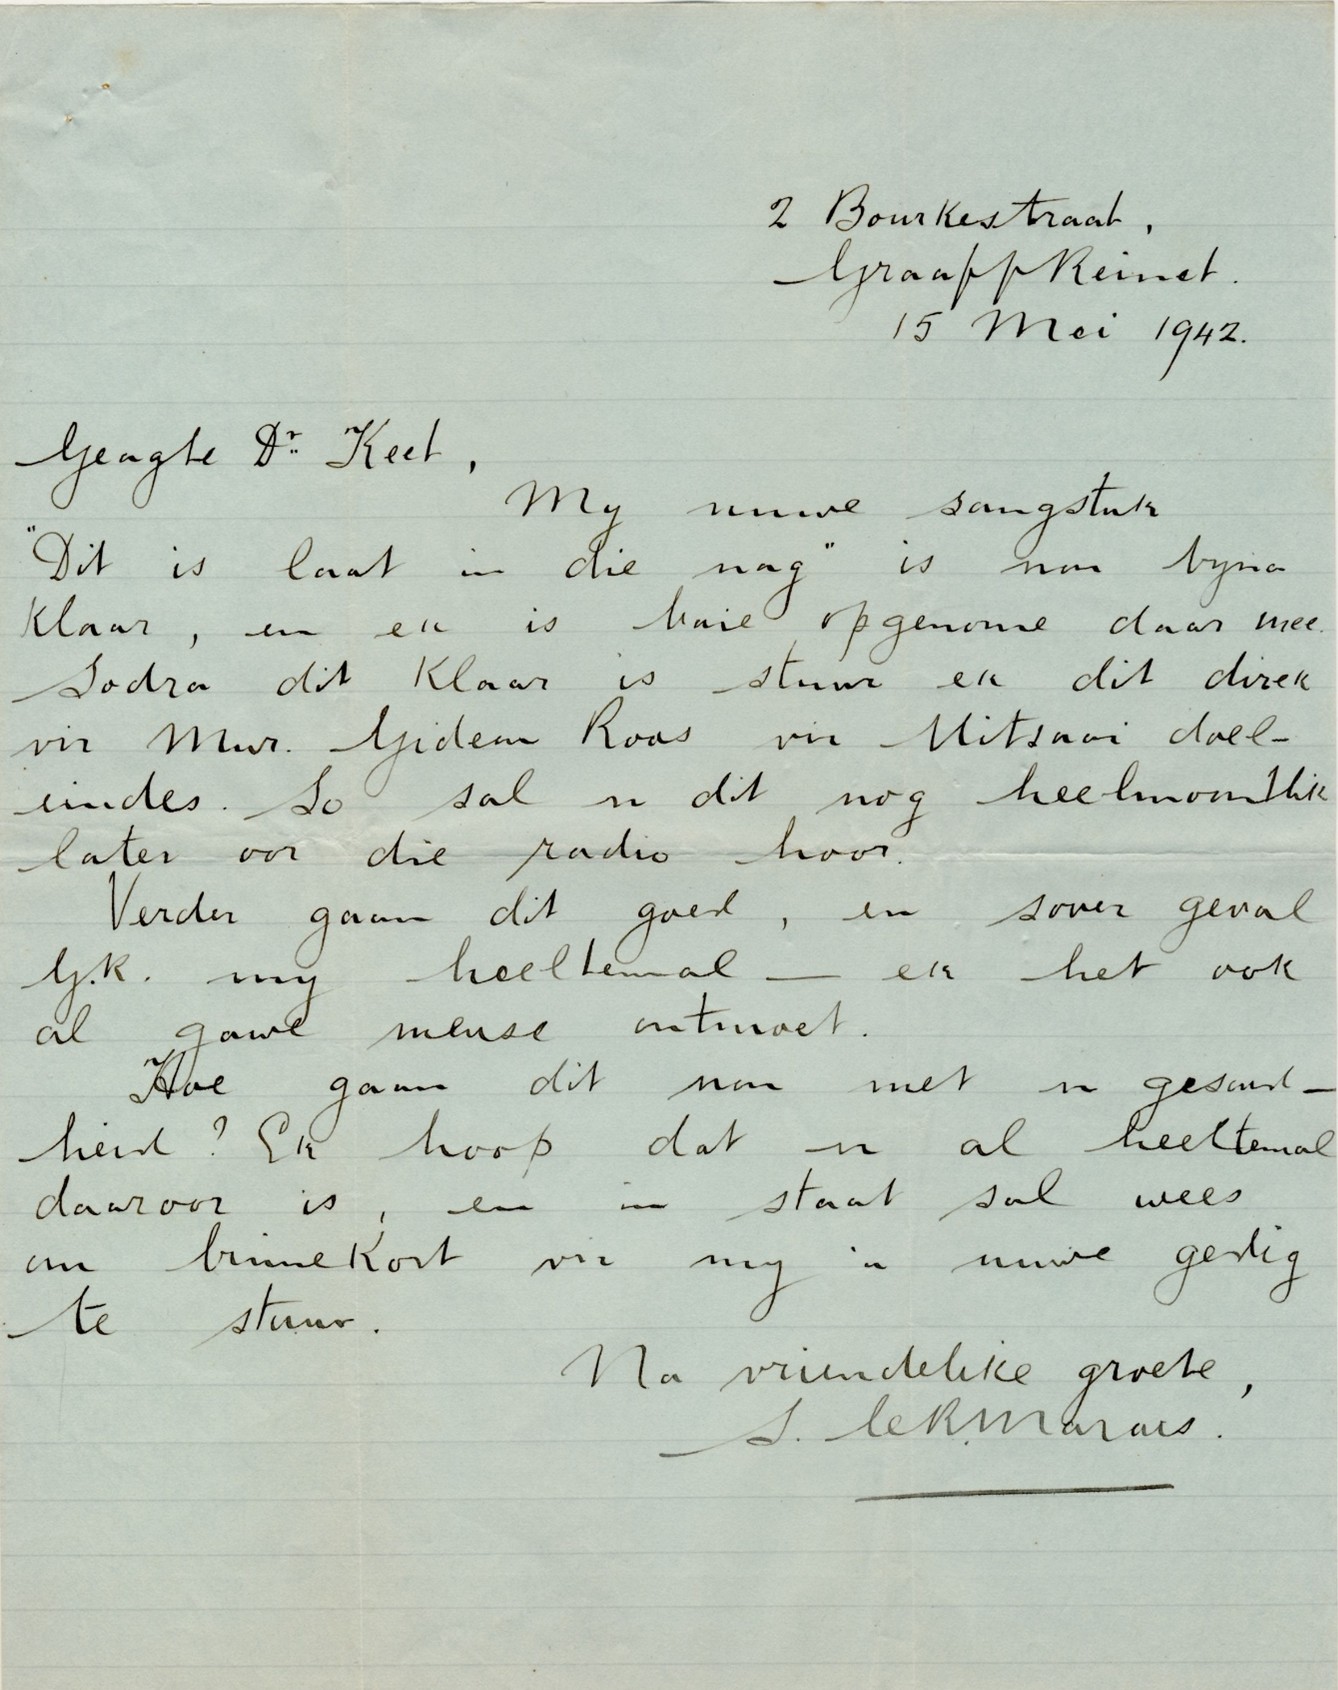 2 Bourkestraat,
Graaff Reinet.
15 Mei 1942.
Geagte Dr. Keet,
My nuwe sangstuk
"Dit is laat in die nag" is nou byna
klaar, en ek is baie opgenome daar mee.
Sodra dit klaar is stuur ek dit direk
vir Mnr. Gideon Roos vir Uitsaai doel-
eindes. So sal u dit nog heelmoontlik
later oor die radio hoor.
Verder gaan dit goed, en sover geval
G.R. my heeltemal — ek het ook
al gawe mense ontmoet.
Hoe gaan dit nou met u gesond-
heid? Ek hoop dat u al heeltemal
daaroor is, en in staat sal wees
om binnekort vir my 'n nuwe gedig
te stuur.
Na vriendelike groete,
S. le R. Marais.